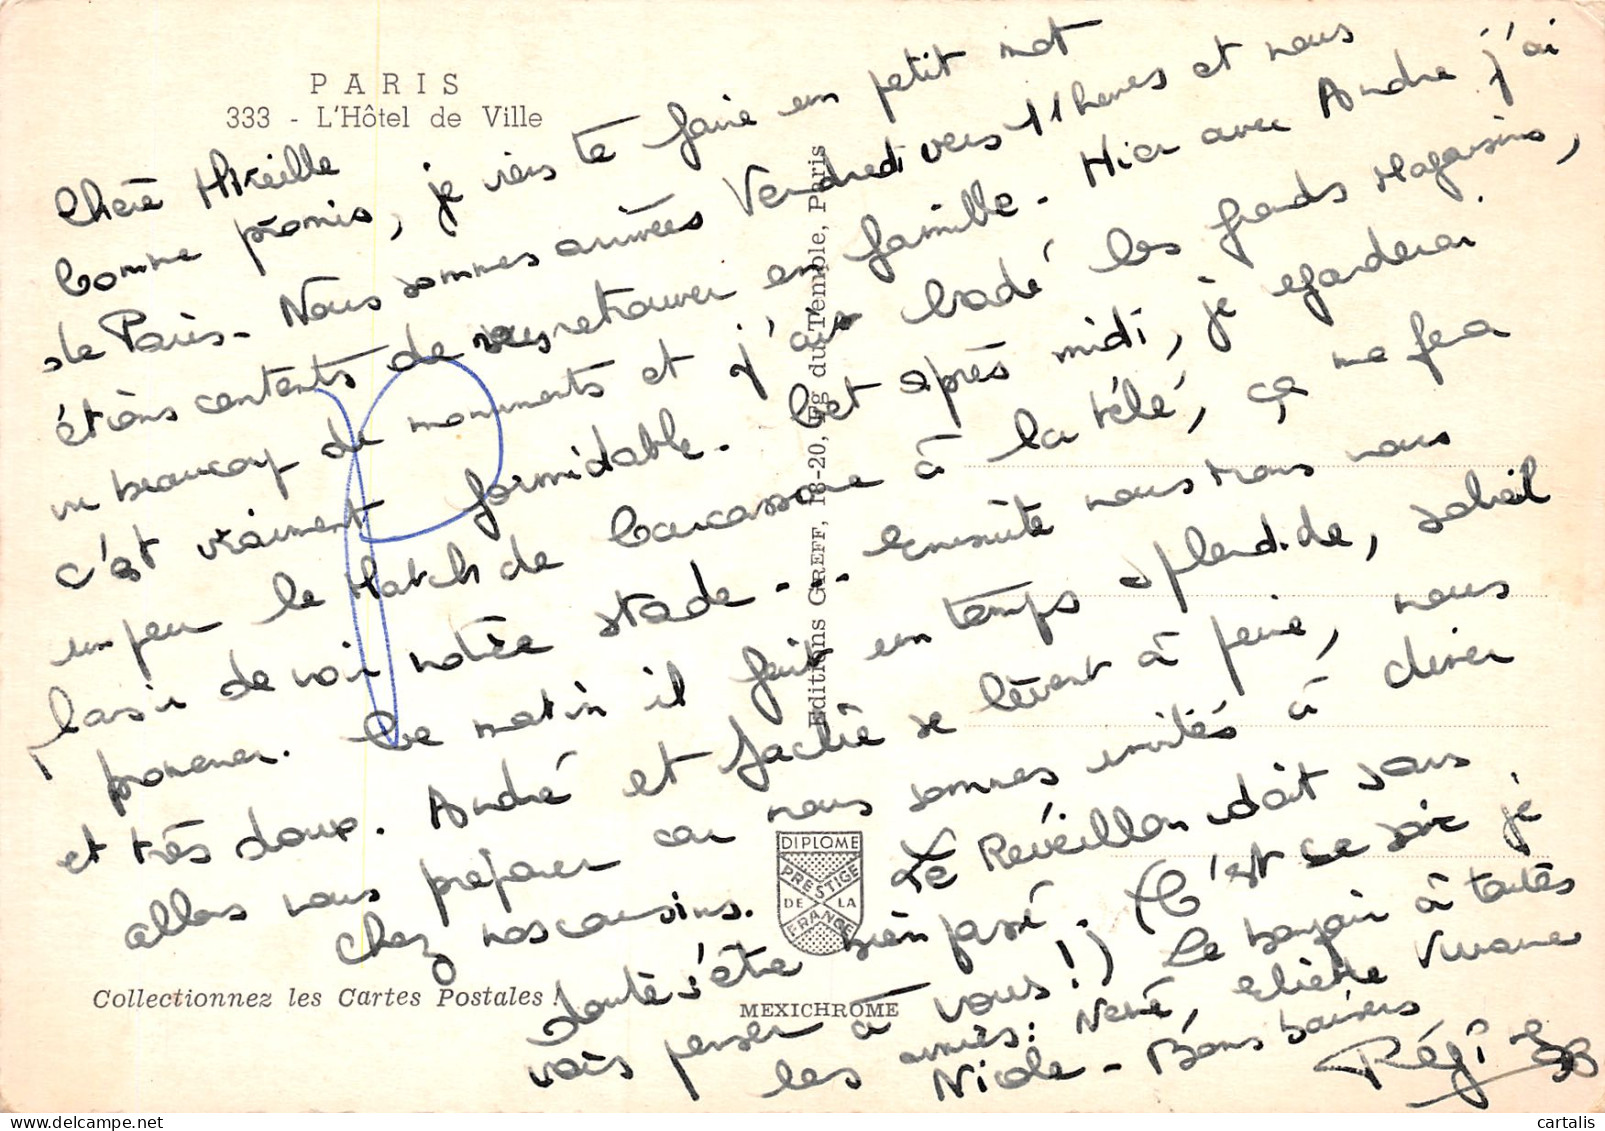 PARIS
333 - L'Hôtel de Ville
Chère Mireille
Comme promis, je viens te faire un petit mot
de Paris - Nous sommes arrivées Vendredi vers 11 heures et nous
étions contents de retrouver en famille - Hier avec André j'ai
vu beaucoup de monuments et j'ai badé les grands Magasins,
c'est vraiment formidable - Cet après midi, je regarderai
un peu le Match de Carcassonne à la télé, ça me fera
plaisir de voir notre stade... Ensuite nous irons nous
promener. Ce matin il fait un temps splendide, soleil
et très doux. André et Jackie se lèvent à peine, nous
allons nous préparer car nous sommes invités à diner
chez nos cousins. Le Réveillon doit sans
doute s'être bien passé. (C'est ce soir je
vais penser à vous!) Le bonjour à toutes
les amies: Nené, Eliette Viviane
Nicole - Bons baisers
Régine
Collectionnez les Cartes Postales !
Editions GREFF, 18-20, Fg du Temple, Paris
DIPLOME
PRESTIGE
DE LA
FRANCE
MEXICHROME
cartalis
delcampe.net